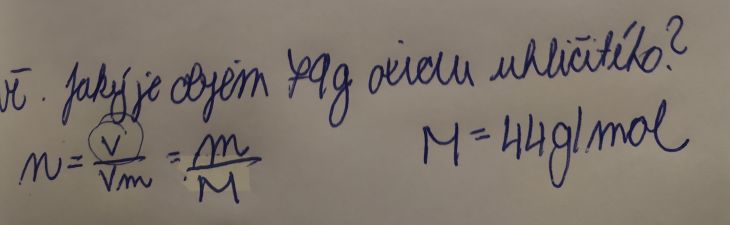 Jaký je objem 79g oxidu uhličitého?
n = V/Vm = m/M M = 44g/mol